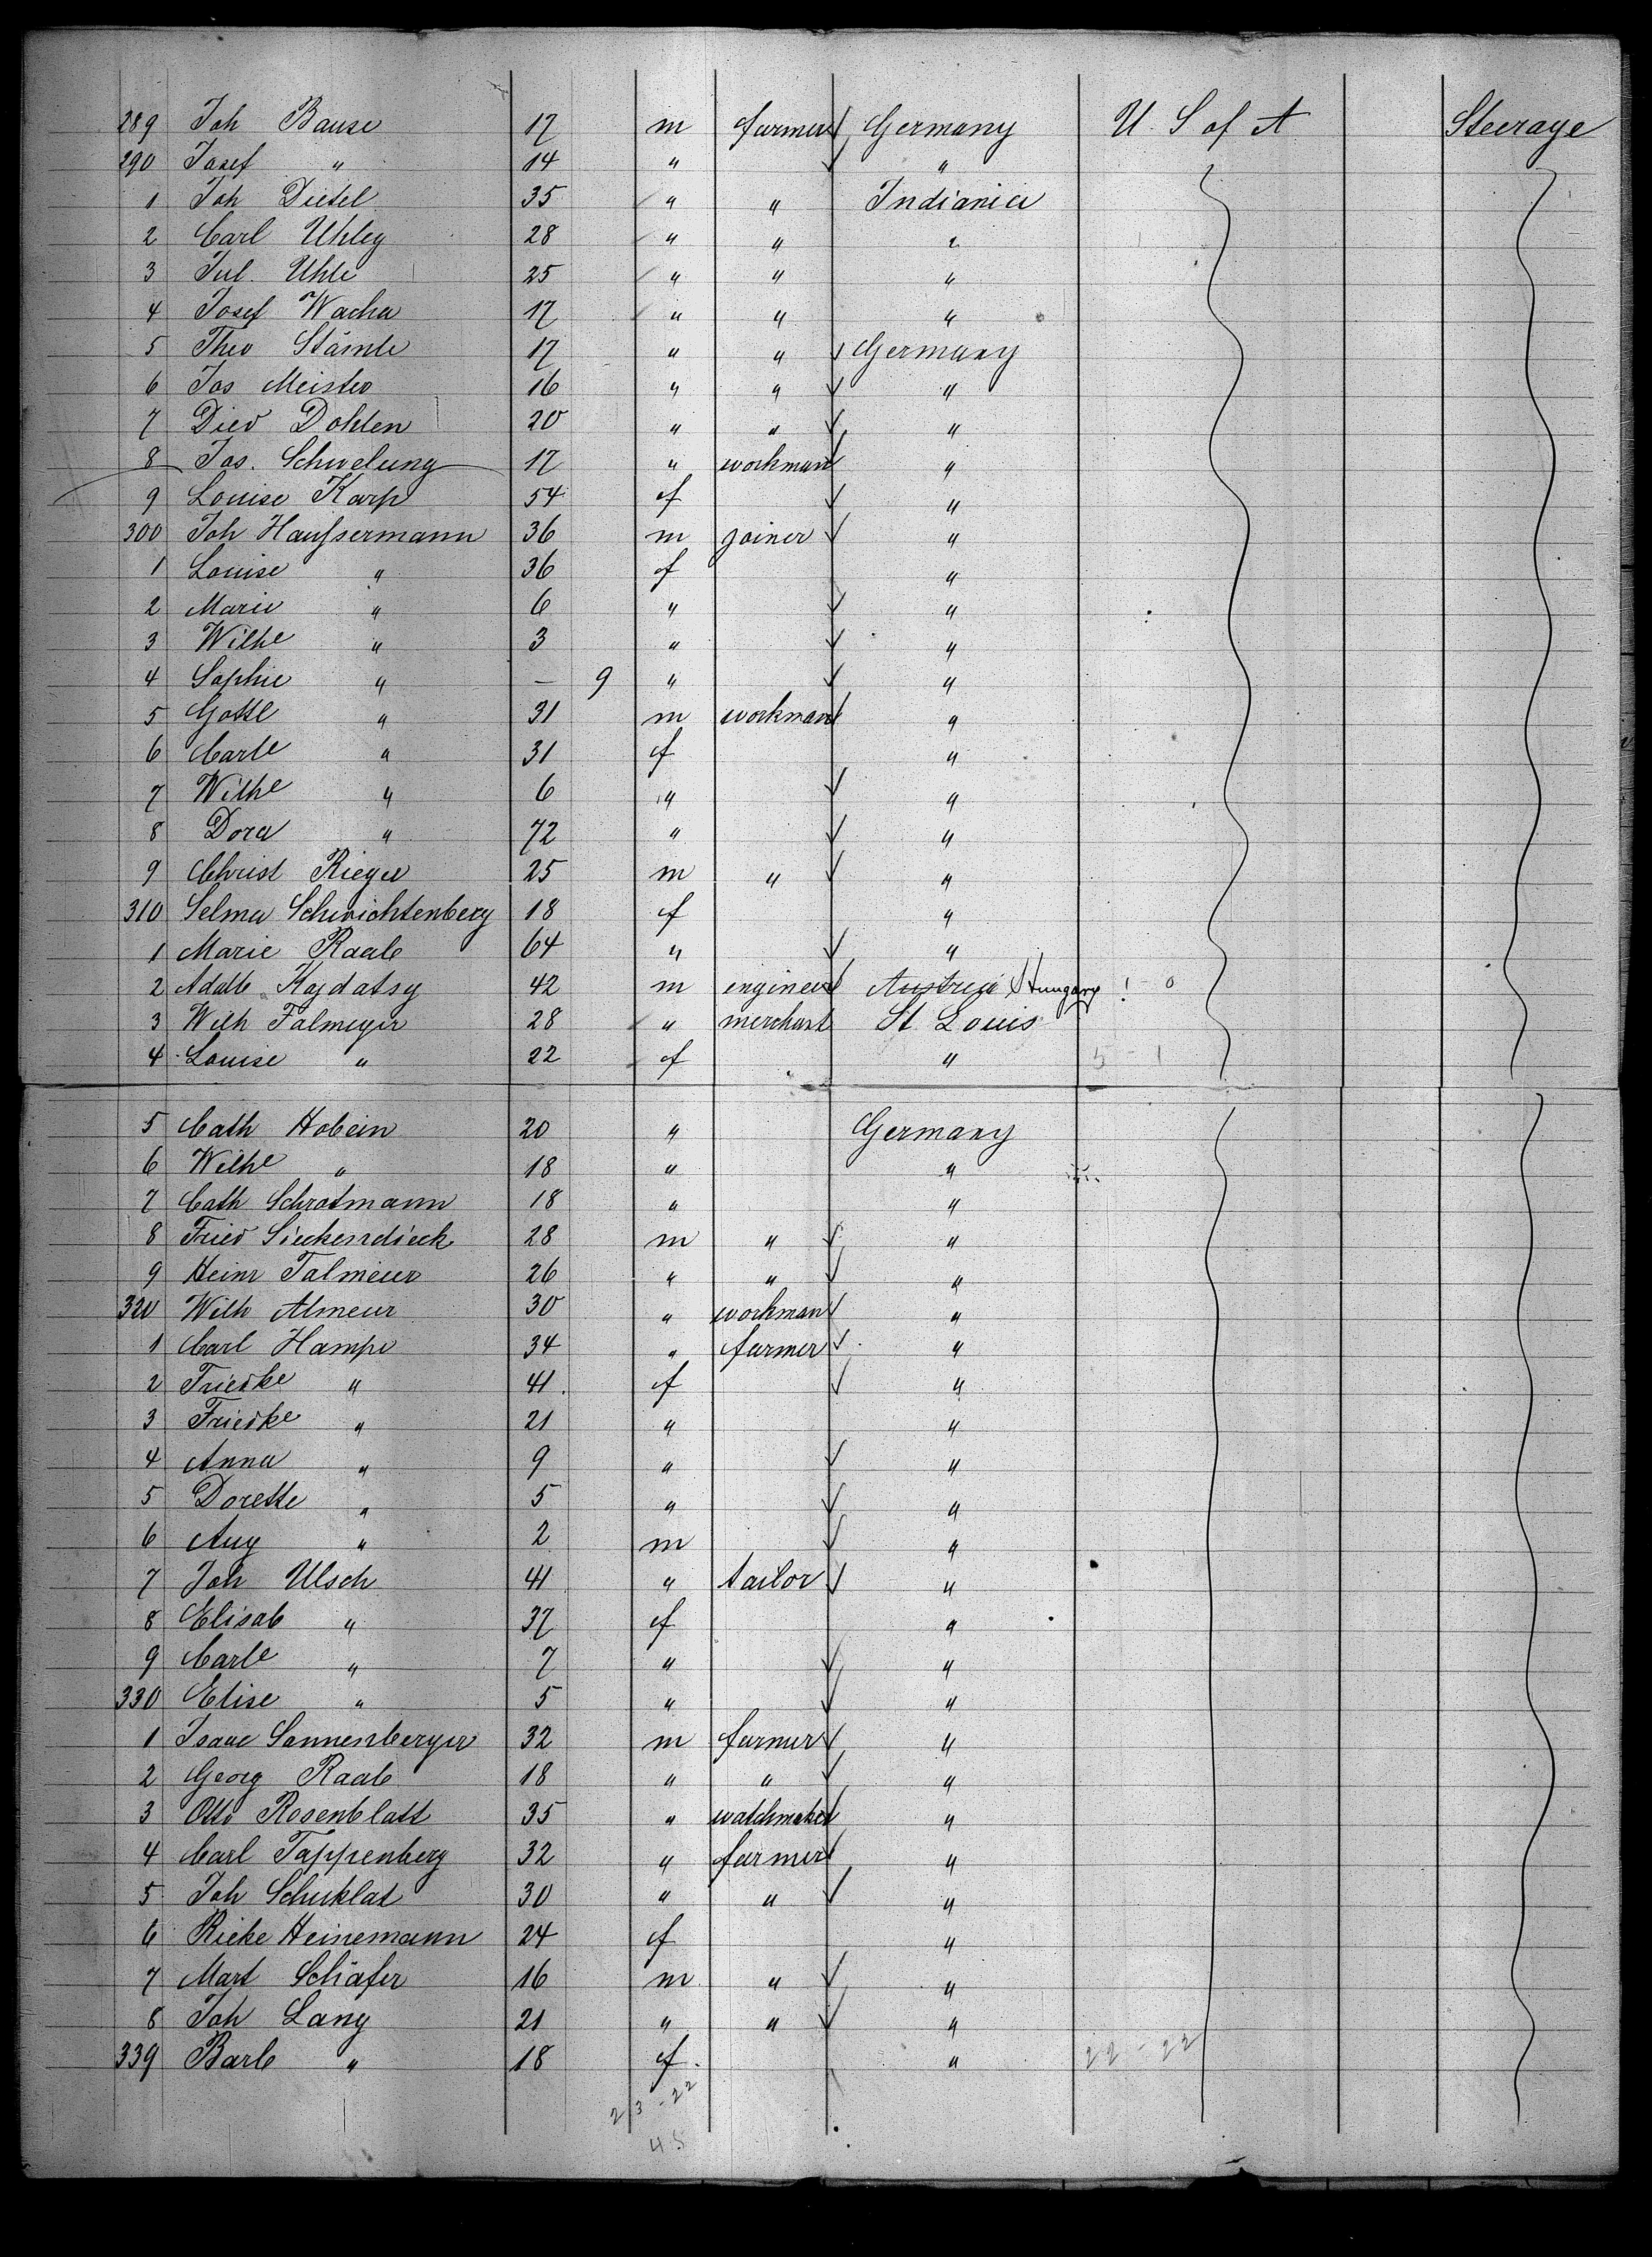 289 Joh Bause 17 m farmer Germany U. S of A Steerage
290 Josef " 14 " "
1 Joh Dietel 35 " " Indiania
2 Carl Uhley 28 " " "
3 Jul. Uhle 25 " " "
4 Josef Wacha 17 " " "
5 Theo Stäinle 17 " " Germany
6 Jos Meister 16 " " "
7 Died Dohlen 20 " " "
8 Jos. Schwelung 17 " workman "
9 Louise Karp 54 f "
300 Joh Haussermann 36 m joiner "
1 Louise " 36 f "
2 Marie " 6 " "
3 Wilhe " 3 " "
4 Sophie " — 9 " "
5 Gottl " 31 m workman "
6 Carle " 31 f "
7 Wilhe " 6 " "
8 Dora " 72 " "
9 Christ Rieger 25 m " "
310 Selma Schwichtenberg 18 f "
1 Marie Raab 64 " "
2 Adalb Kajdatsy 42 m engineer Austria Hungary 1 - 0
3 Wilh Falmeyer 28 " merchant St Louis
4 Louise " 22 f " 5 - 1
5 Cath Hobein 20 " Germany
6 Wilhe " 18 " "
7 Cath Schrotmann 18 " "
8 Fried Sieckendieck 28 m " "
9 Heinr Talmeier 26 " " "
320 Wilh Almeur 30 " workman "
1 Carl Hampe 34 " farmer "
2 Friedke " 41 f "
3 Friedke " 21 " "
4 Anna " 9 " "
5 Dorette " 5 " "
6 Aug " 2 m "
7 Joh Ulsch 41 " tailor "
8 Elisab " 37 f "
9 Carle " 7 " "
330 Elise " 5 " "
1 Isaac Sonnenberger 32 m farmer "
2 Georg Raab 18 " " "
3 Otto Rosenblatt 35 " watchmaker "
4 Carl Tappenberg 32 " farmer "
5 Joh Schuklat 30 " " "
6 Rieke Heinemann 24 f "
7 Mart Schäfer 16 m " "
8 Joh Lang 21 " " "
339 Barb " 18 f " 22 - 22
23 - 22
45